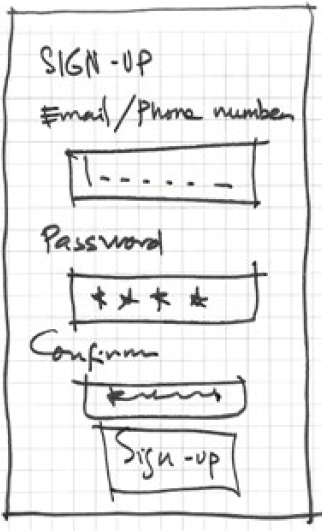 SIGN-UP
Email/Phone number
Password
****
Confirm
Sign-up